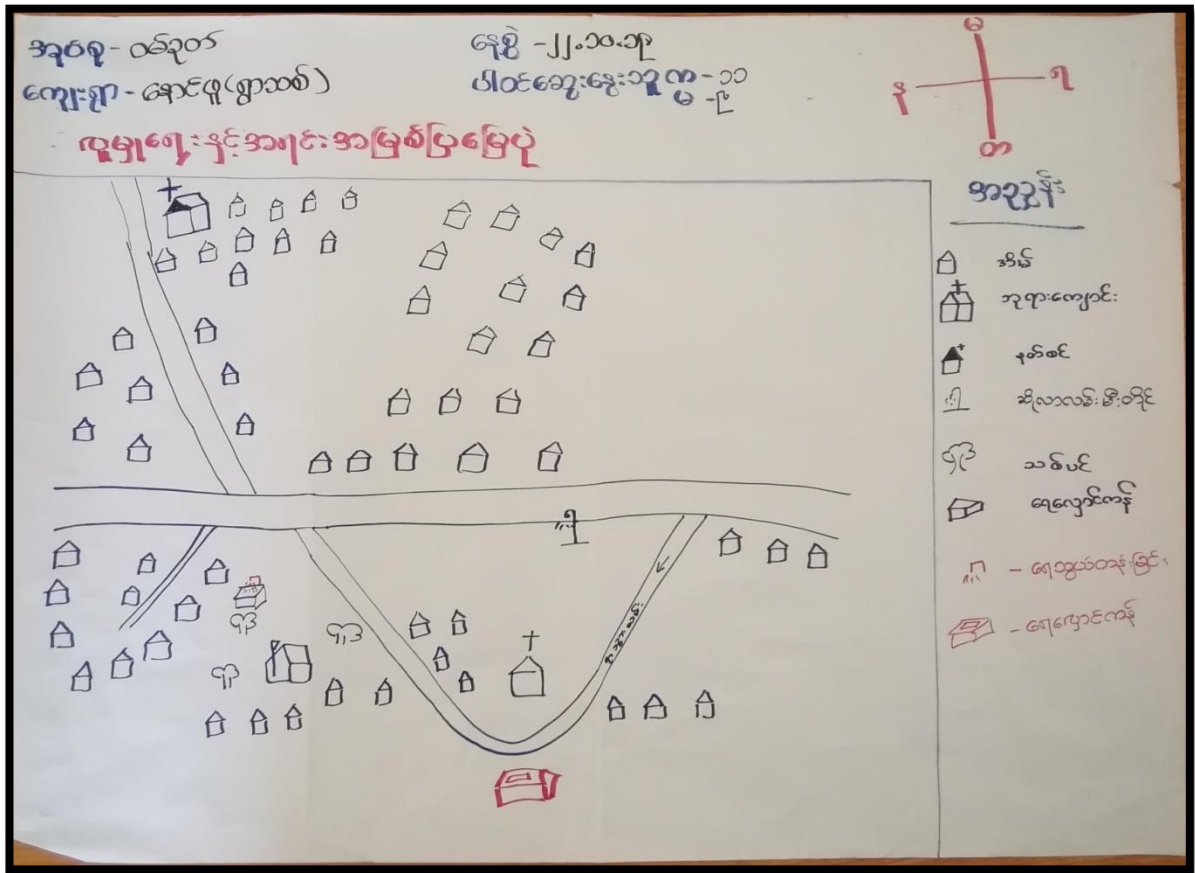 အုပ်စု - ဝမ်ဒုတ်
ကျေးရွာ - နောင်ဖူ (ရွာသစ်)
နေ့စွဲ - ၂၂.၁၀.၁၉
ပါဝင်ဆွေးနွေးသူ ကျား - ၁၁
မ - ၉
လူမှုရေးနှင့်အရင်းအမြစ်ပြမြေပုံ
မ
န
ရ
တ
အညွှန်း
အိမ်
ဘုရားကျောင်း
နတ်စင်
ဆိုလာလမ်းမီးတိုင်
သစ်ပင်
ရေလှောင်ကန်
- ရေသွယ်တန်းခြင်း
- ရေလှောင်ကန်